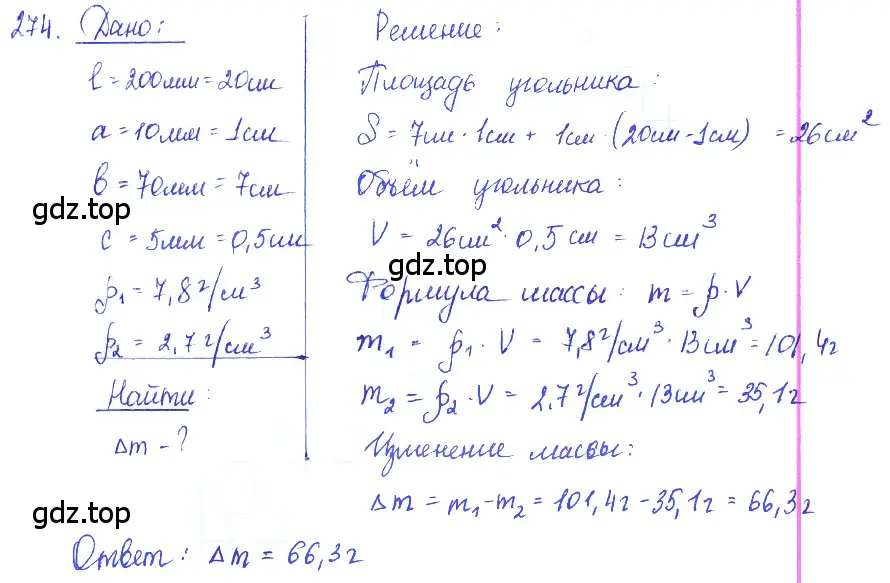 274. Дано:
l = 200мм = 20см
a = 10мм = 1см
b = 70мм = 7см
gdz.top
c = 5мм = 0,5см
ρ₁ = 7,8 г/см³
ρ₂ = 2,7 г/см³
Найти:
Δm - ?
Решение:
Площадь угольника:
S = 7см · 1см + 1см · (20см - 1см) = 26см²
Объём угольника:
V = 26см² · 0,5 см = 13см³
gdz.top
Формула массы: m = ρ · V
m₁ = ρ₁ · V = 7,8 г/см³ · 13см³ = 101,4г
m₂ = ρ₂ · V = 2.7 г/см³ · 13см³ = 35,1г
Изменение массы:
Δm = m₁ - m₂ = 101,4г - 35,1г = 66,3г
gdz.top
Ответ: Δm = 66,3г